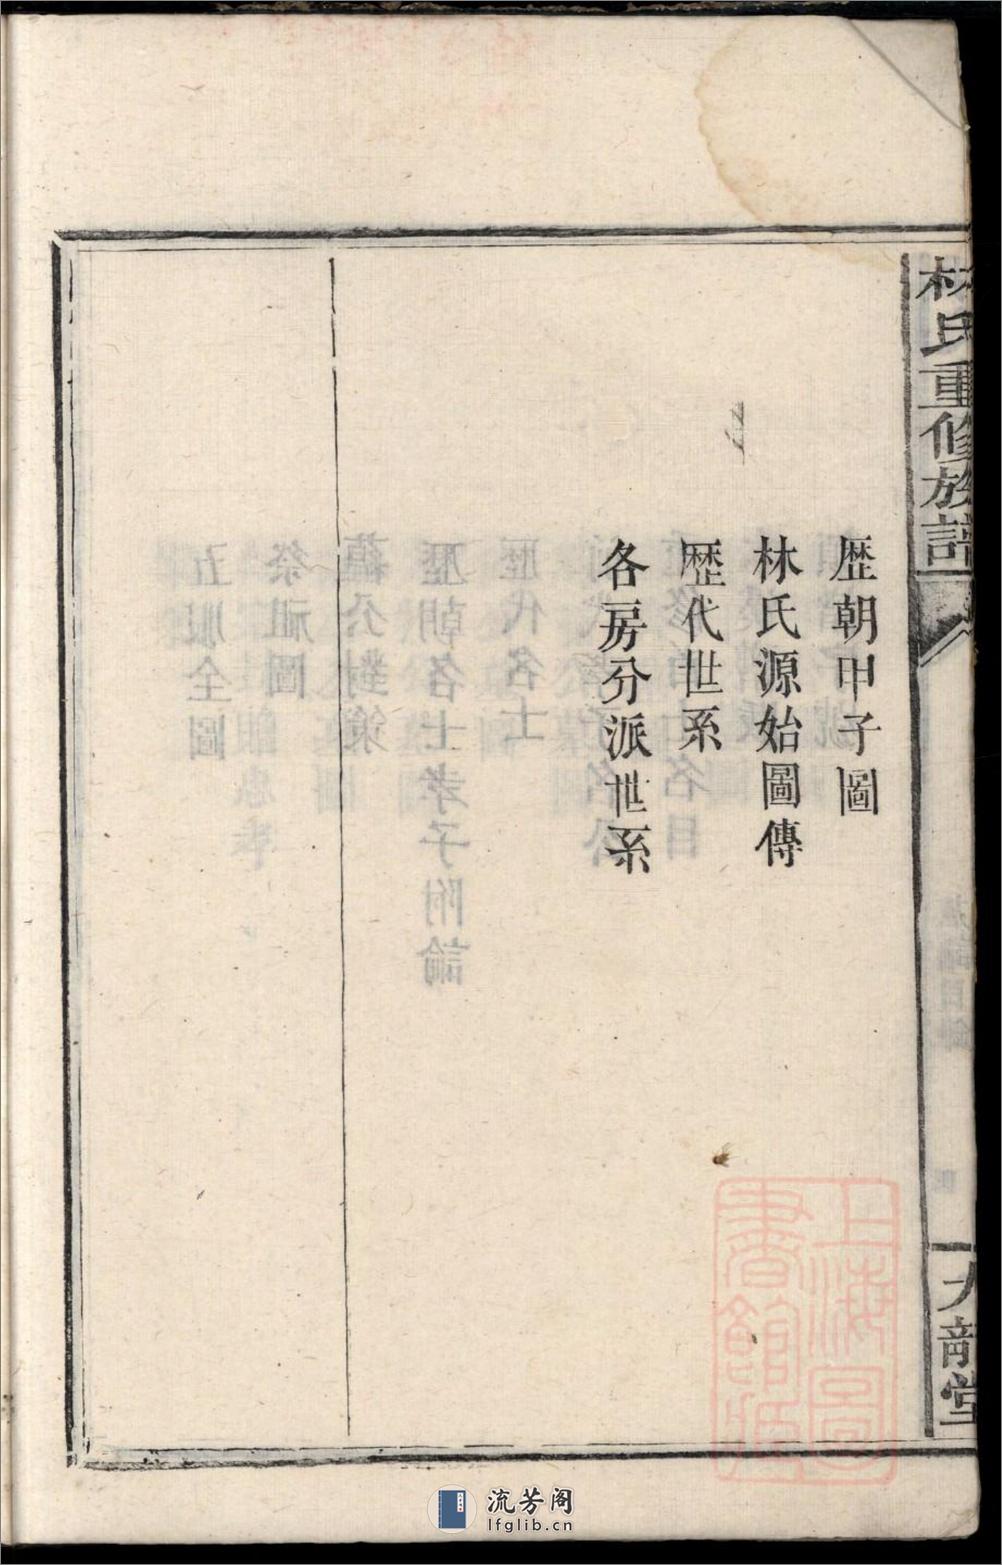 林氏重修族譜
九龍堂
歷朝甲子圖
林氏源始圖傳
歷代世系
各房分派世系
上海圖書館藏
流芳阁
lfglib.cn